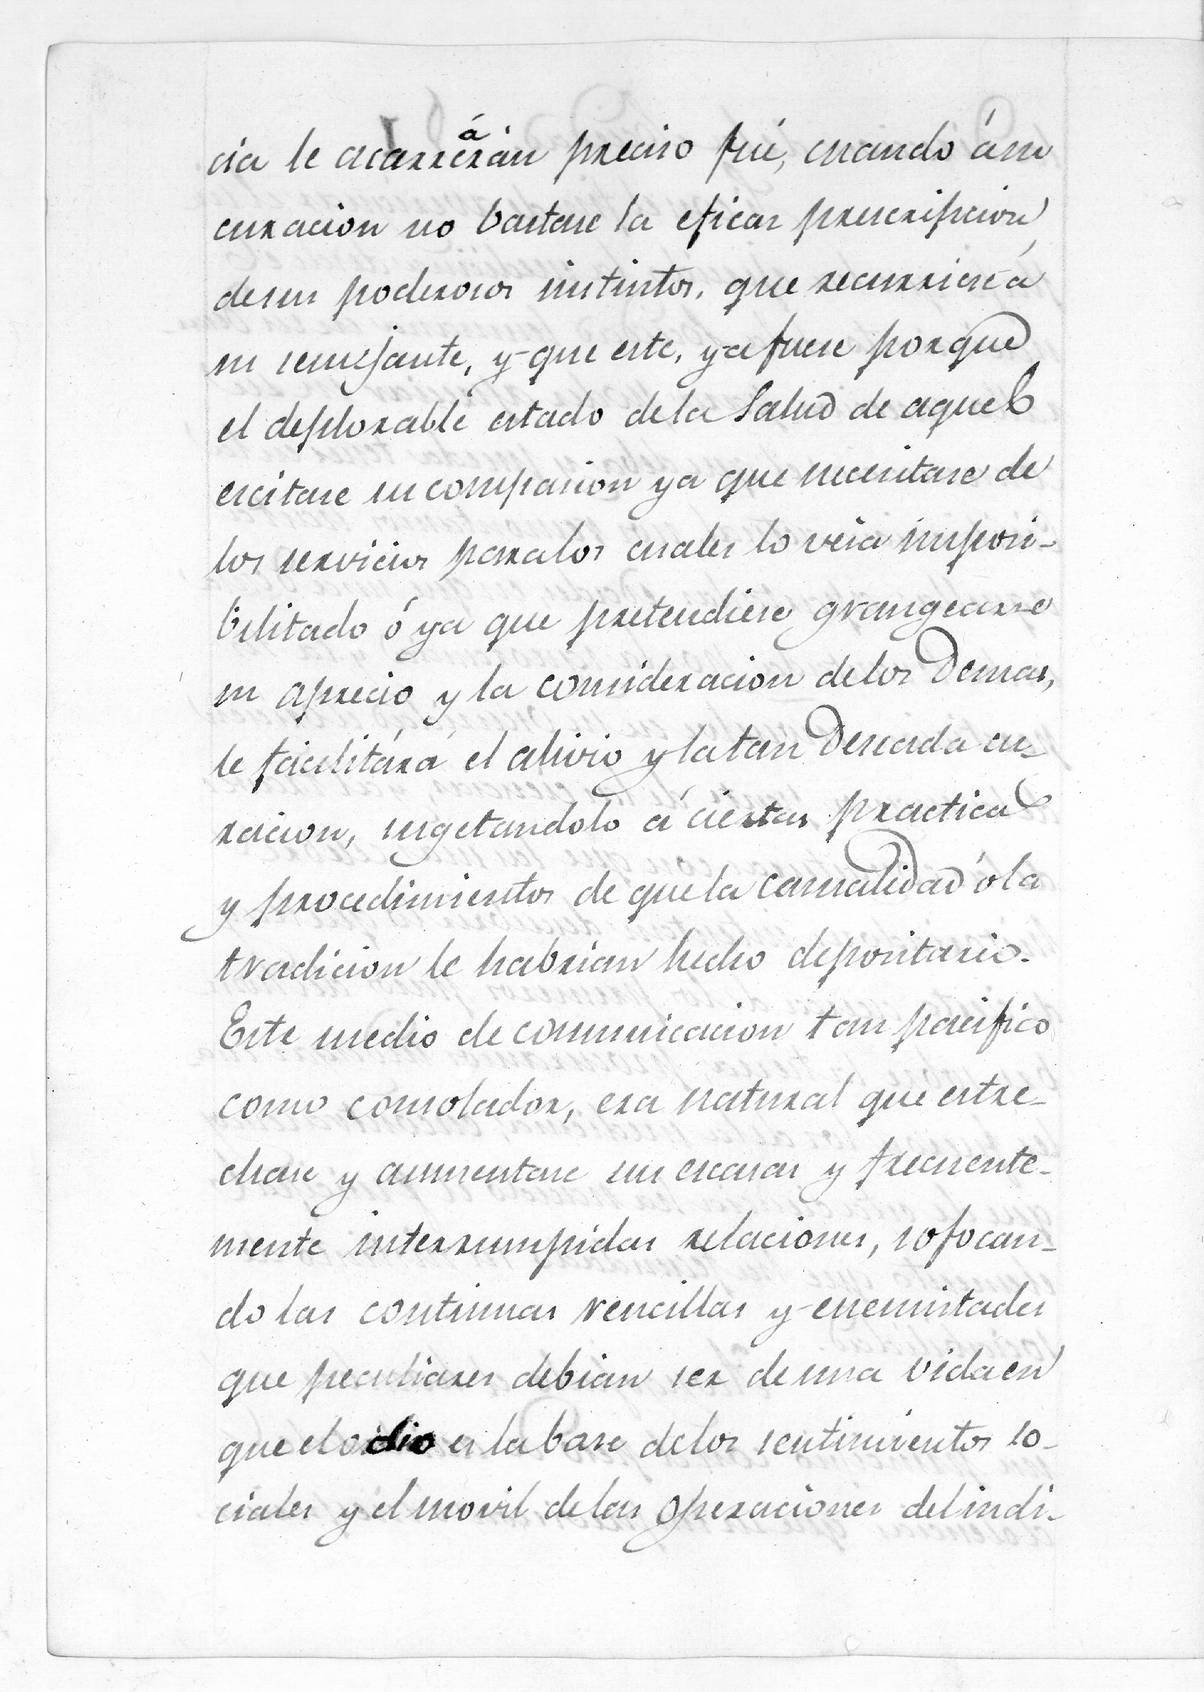 cia le acarrerán preciso fué, cuando ásu
curacion no bastase la eficaz prescripcion
desus poderosos instintos, que recurriese á
su semejante, y que este, ya fuese porque
el deplorable estado dela Salud de aquel
escitase su compasion ya que necesitase de
los servicios paralos cuales lo veia imposi-
bilitado ó ya que pretendiese grangearse
su aprecio y la consideracion delos Demas,
le facilitára el alivio y latan Deseada cu-
racion, sugetandolo á ciertas practicas
y procedimientos de que la casualidad óla
tradicion le habrian hecho depositario.
Este medio de comunicacion tan pacifico
como consolador, era natural que estre-
chase y aumentase sus escasas y frecuente-
mente interrumpidas relaciones, sofocan-
do las continuas rencillas y enemistades
que peculiares debian ser de una vida en
que el odio es la base delos sentimientos so-
ciales y el movil de las operaciones del indi-